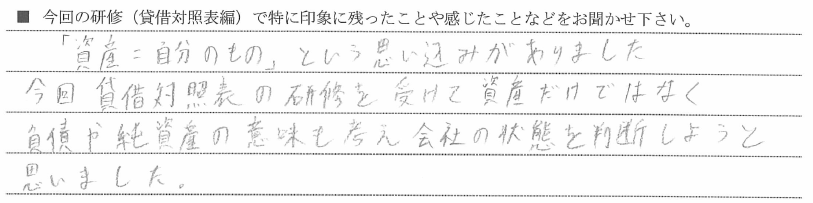 ■ 今回の研修（貸借対照表編）で特に印象に残ったことや感じたことなどをお聞かせ下さい。
「資産＝自分のもの」という思い込みがありました
今回 貸借対照表の研修を受けて資産だけではなく
負債や純資産の意味も考え会社の状態を判断しようと
思いました。